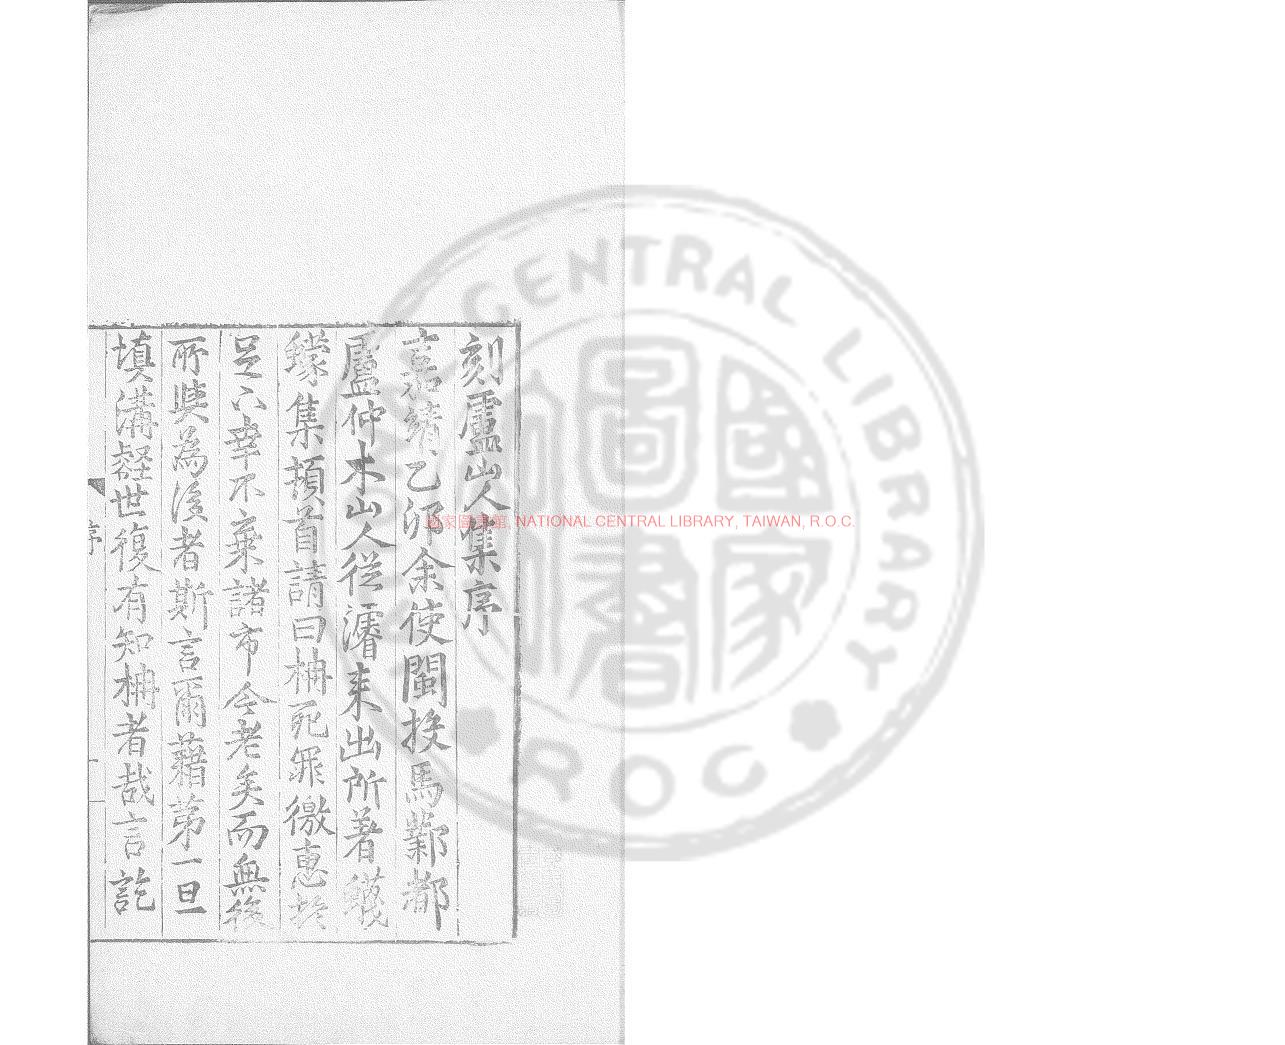 刻盧山人集序
嘉靖乙卯余使閩投馬鄴都
盧仲木山人從濬来出所著蠛
蠓集頓首請曰柟死罪徼惠於
足下幸不棄諸市今老矣而無後
所與為後者斯言爾藉第一旦
填溝壑世復有知柟者哉言訖
序
一
國家圖書館, NATIONAL CENTRAL LIBRARY, TAIWAN, R.O.C.
CENTRAL LIBRARY
ROC
國家圖書